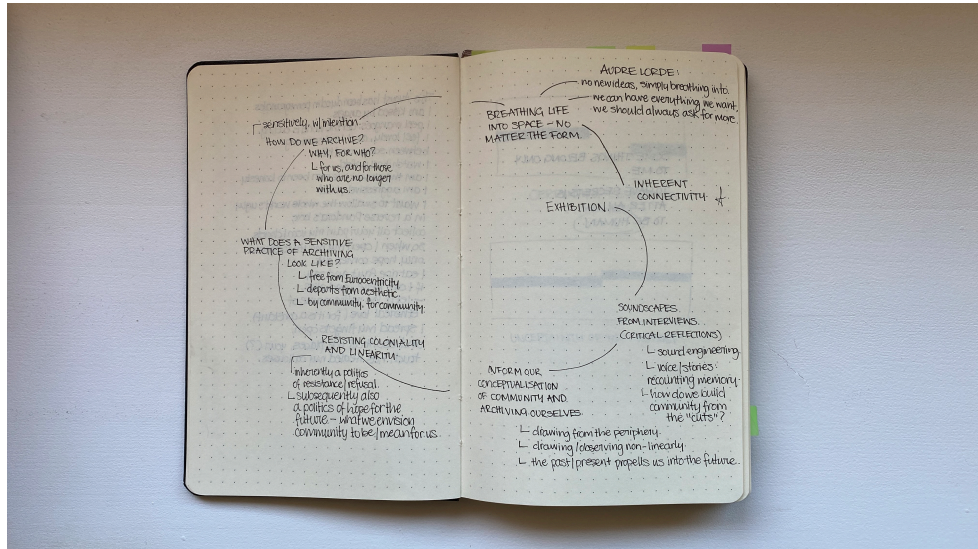 sensitively, w/intention
HOW DO WE ARCHIVE?
WHY, FOR WHO?
for us, and for those
who are no longer
with us.
WHAT DOES A SENSITIVE
PRACTICE OF ARCHIVING
LOOK LIKE?
free from Eurocentricity.
departs from aesthetic.
by community. for community.
RESISTING COLONIALITY
AND LINEARITY
inherently a politics
of resistance/refusal.
subsequently also
a politics of hope for the
future – what we envision
community to be/mean for us.
AUDRE LORDE:
no new ideas, simply breathing into.
we can have everything we want,
we should always ask for more.
BREATHING LIFE
INTO SPACE – NO
MATTER THE FORM.
INHERENT
CONNECTIVITY
EXHIBITION
SOUNDSCAPES
FROM INTERVIEWS.
(CRITICAL REFLECTIONS)
sound engineering.
voice/stories:
recounting memory.
how do we build
community from
the "cuts"?
INFORM OUR
CONCEPTUALISATION
OF COMMUNITY AND
ARCHIVING OURSELVES.
drawing from the periphery.
drawing/observing non-linearly.
the past/present propells us into the future..